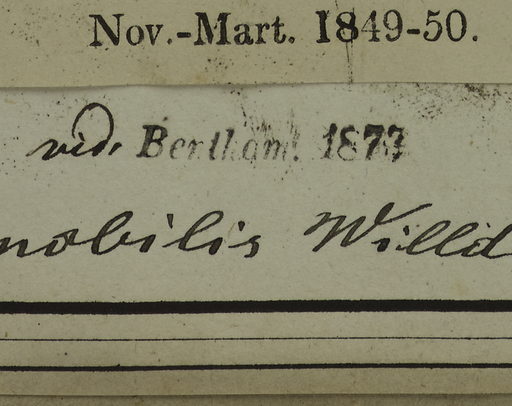 Nov.-Mart. 1849-50.
vid. Bentham. 1873
nobilis Willd